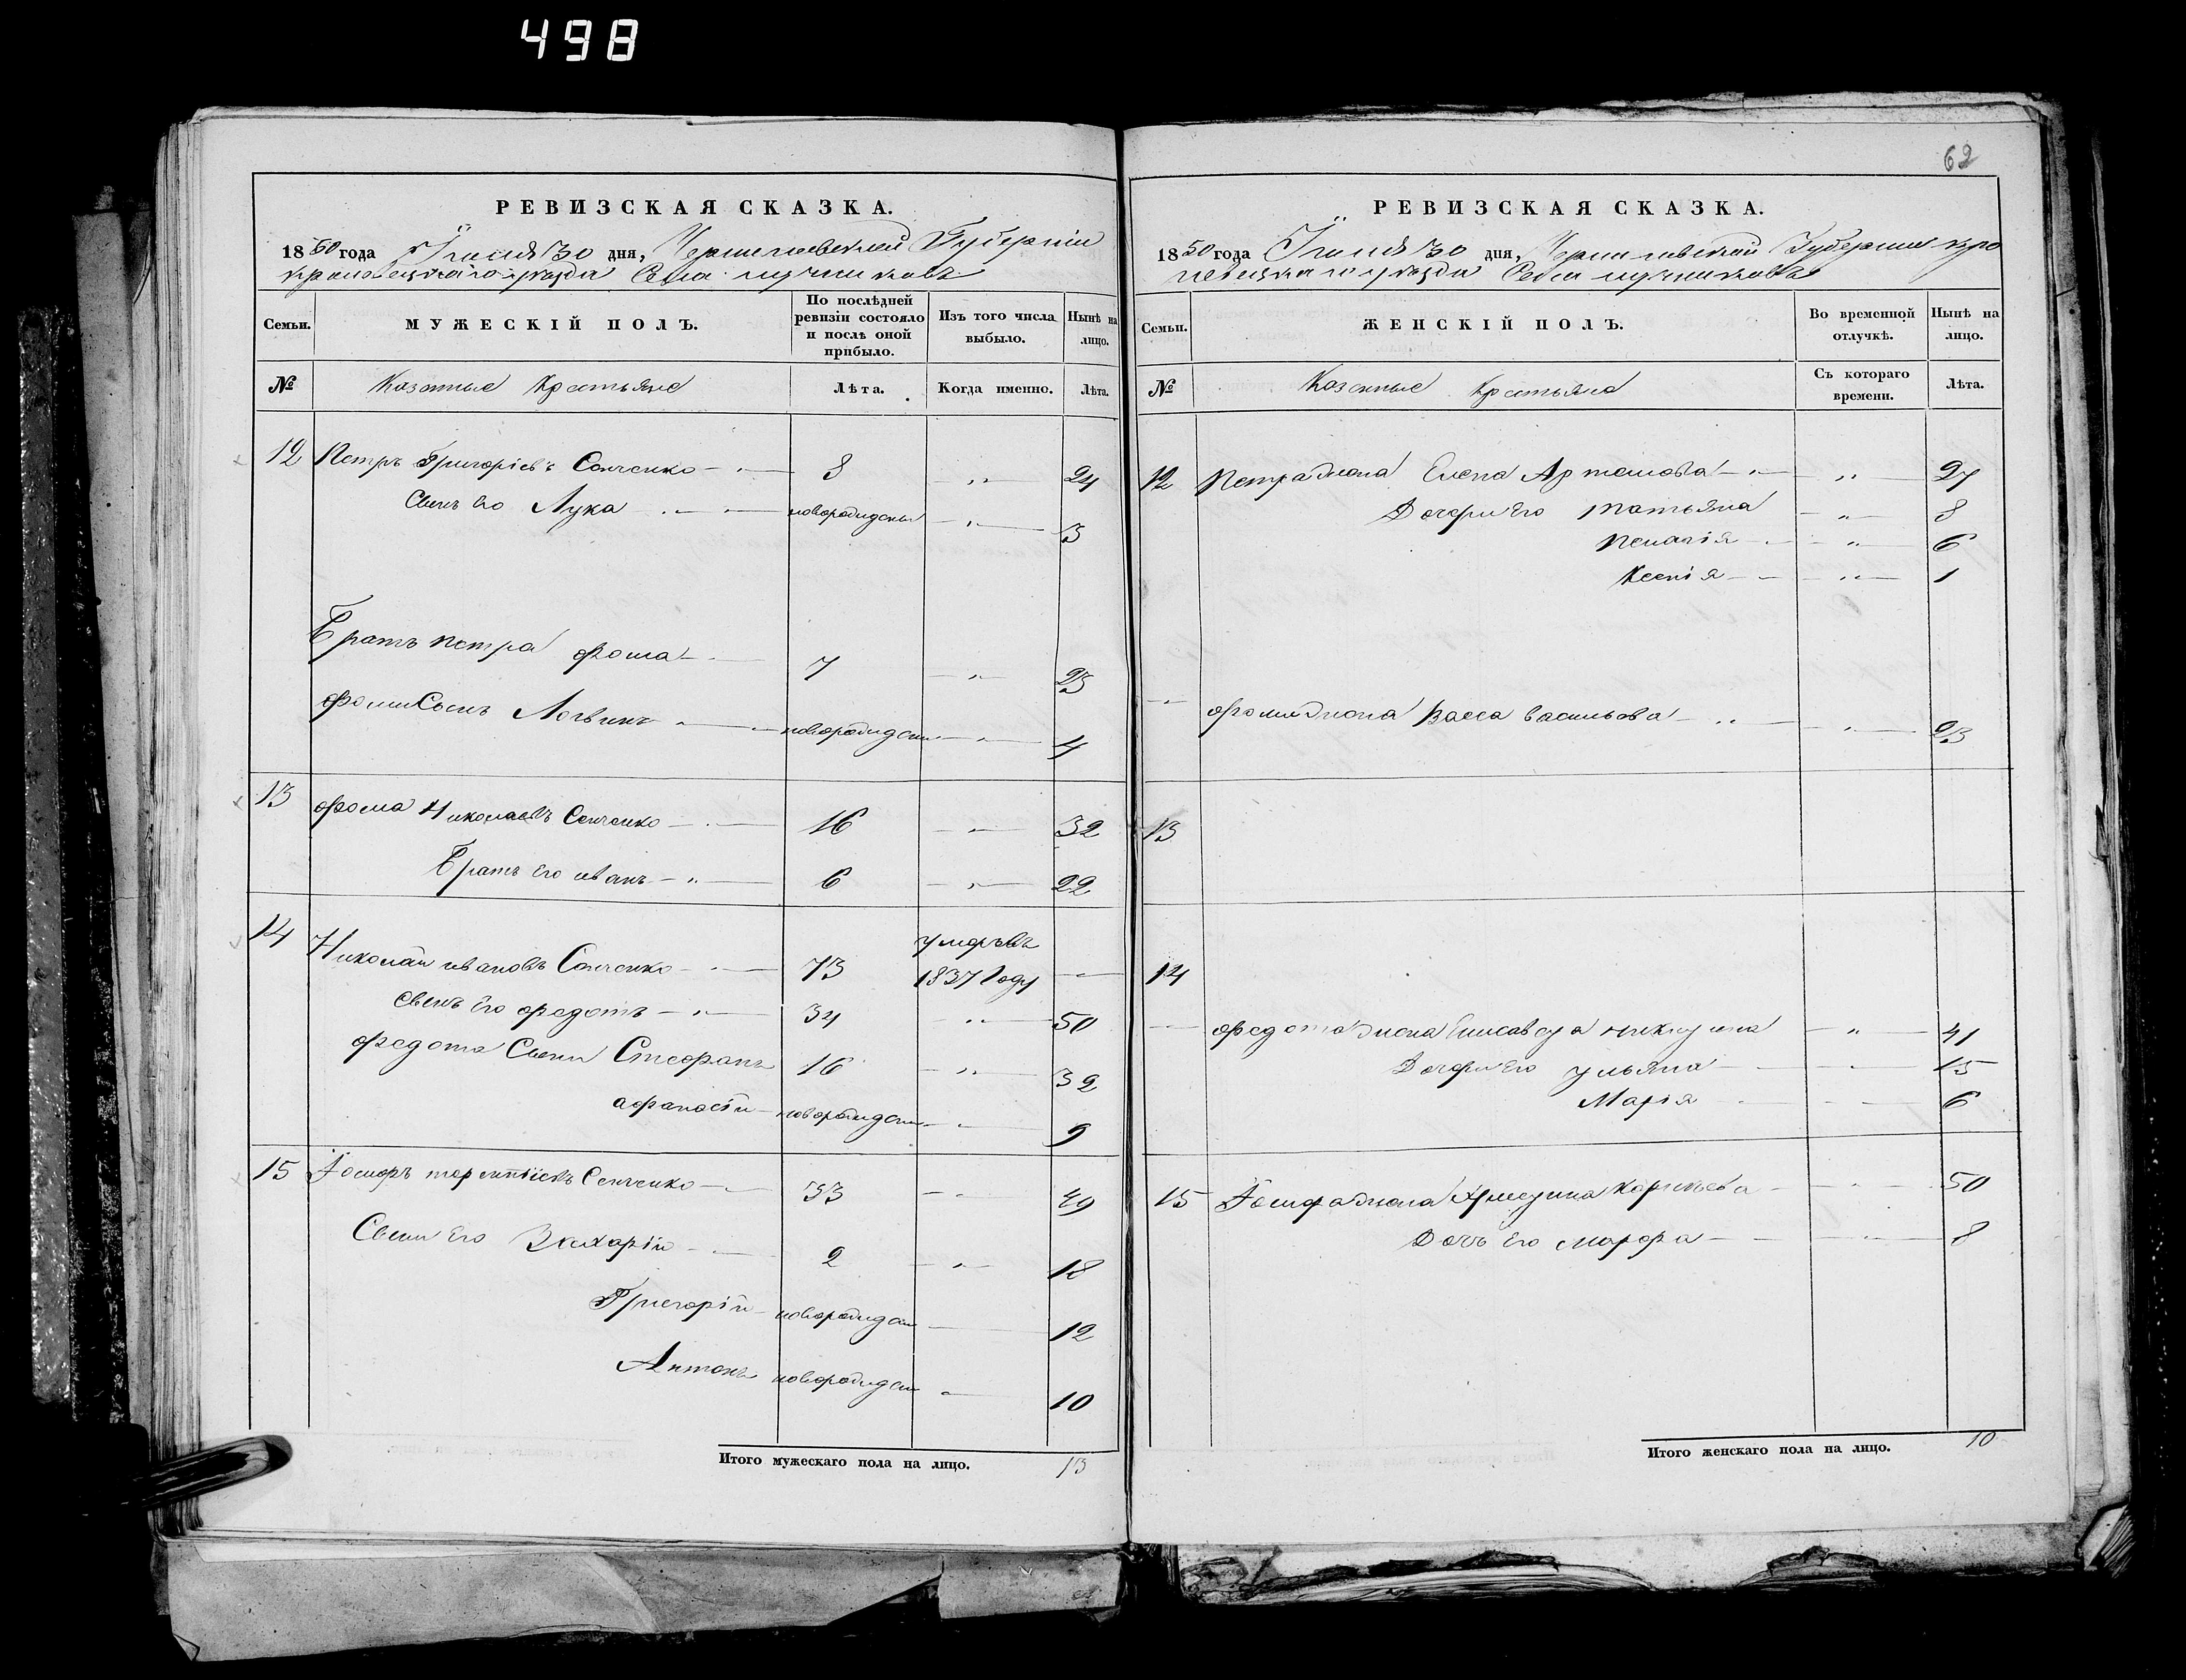 498
РЕВИЗСКАЯ СКАЗКА.
1850 года Іюня 30 дня, Черниговской Губерніи
кролевецкаго уезда Села лучниковъ
Семьи. МУЖЕСКІЙ ПОЛЪ. По послѣдней ревизіи состояло и послѣ оной прибыло. Изъ того числа выбыло. Нынѣ на лицо.
№ Казенные Крестьяне Лѣта. Когда именно. Лѣта.
12 Петръ Григоріевъ Сенченко 8 „ 24
Сынъ Его Лука новорожденый „ 3
Братъ Петра Фома 7 „ 23
Фомы Сынъ Логвинъ новорожден „ 4
13 Фома Николаевъ Сенченко 16 „ 32
Братъ Его иванъ 6 „ 22
14 Николай ивановъ Сенченко 73 умеръ въ 1837 Году —
Сынъ Его Федотъ 34 „ 50
Федота Сыны Стефанъ 16 „ 32
афанасій новорожден „ 9
15 Іосифъ терентіевъ Сенченко 33 „ 49
Сыны Его Захарій 2 „ 18
Григорій новорожден 12
Антонъ новорожден 10
Итого мужескаго пола на лицо. 13
62
РЕВИЗСКАЯ СКАЗКА.
1850 года Іюня 30 дня, Черниговской Губернии кро
левецкаго уезда Села лучниковъ
Семьи. ЖЕНСКІЙ ПОЛЪ. Во временной отлучкѣ. Нынѣ на лицо.
№ Казенные Крестьяне Съ котораго времени. Лѣта.
12 Петра жена Елена Артемова „ 27
Дочери Его татьяна „ 8
Пелагія „ 6
Ксенія „ 1
Фомы жена Васса васильева „ 23
13
14
Федота жена Елисавета „ 41
Дочери Его ульяна 15
Марія 6
15 Іосифа жена Корнеева „ 50
Дочь Его марфа „ 8
Итого женскаго пола на лицо. 10